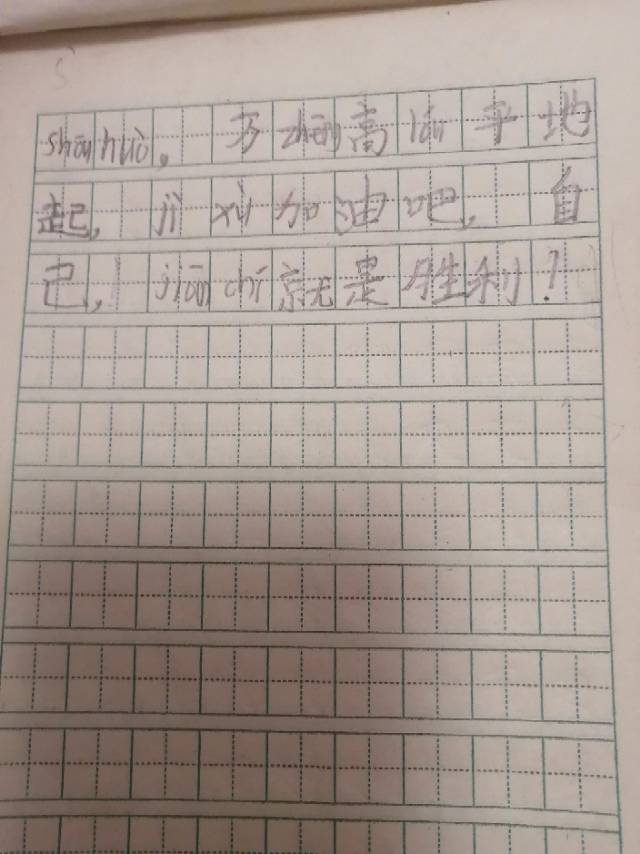 shōu huò, 万 zhàng 高 lóu 平 地
起, jì xù 加 油 吧, 自
己, jiān chí 就 是 胜 利!